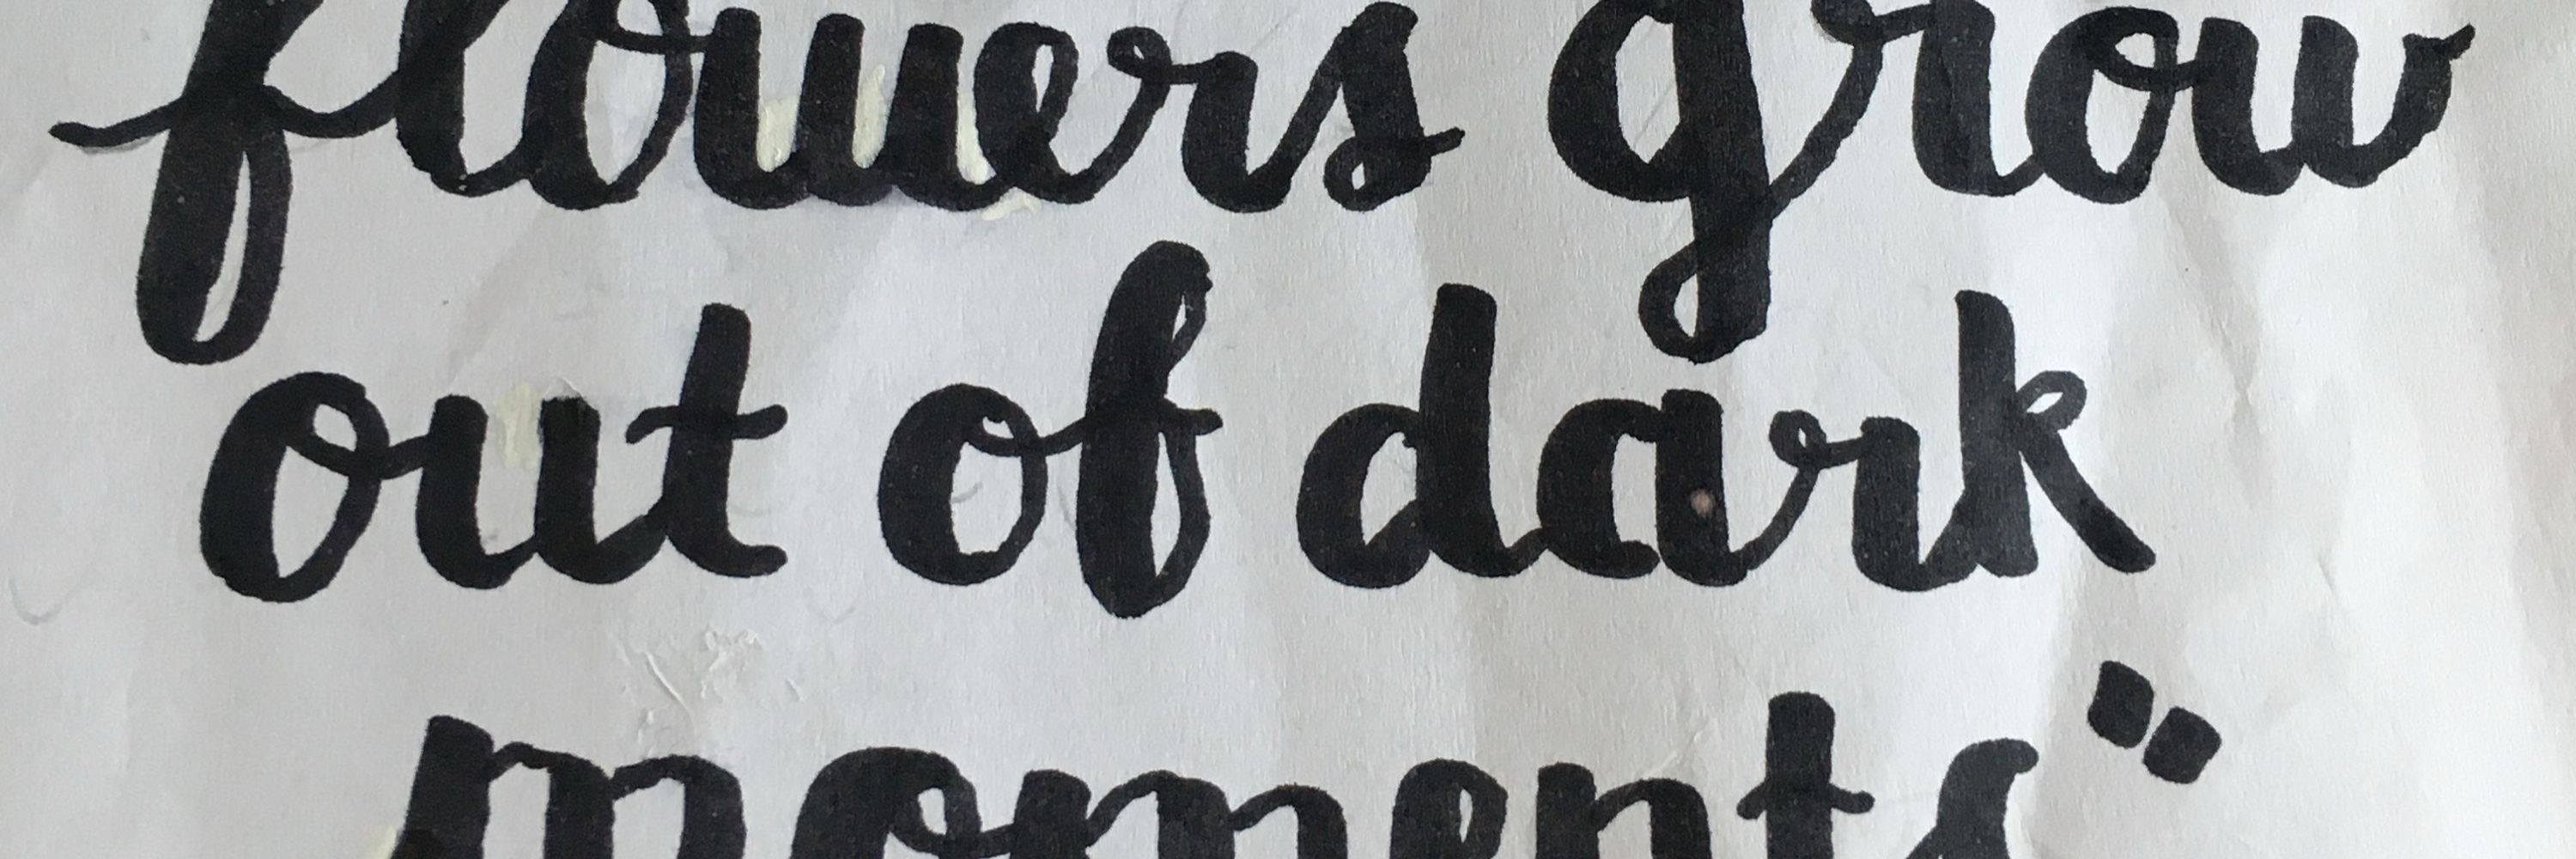 flowers grow
out of dark
moments"